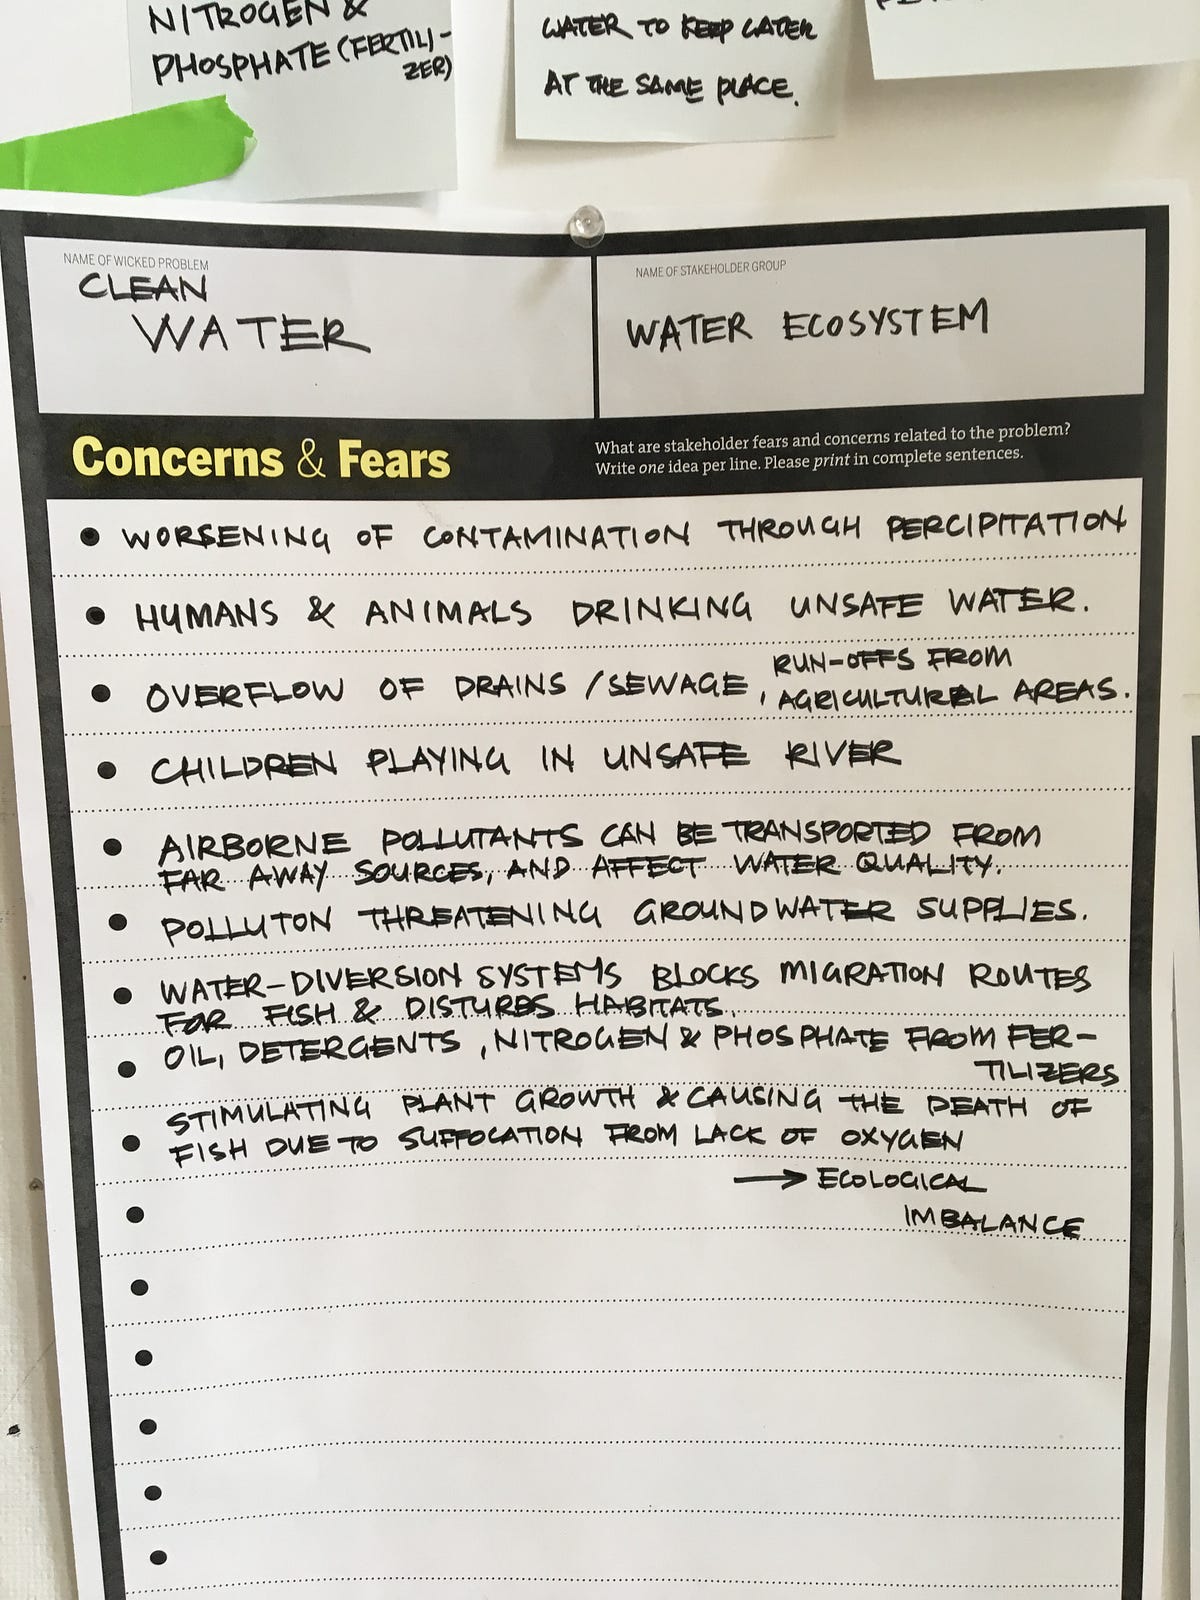 NITROGEN &
PHOSPHATE (FERTILI-
ZER)
WATER TO KEEP WATER
AT THE SAME PLACE.
NAME OF WICKED PROBLEM
CLEAN
WATER
NAME OF STAKEHOLDER GROUP
WATER ECOSYSTEM
Concerns & Fears
What are stakeholder fears and concerns related to the problem?
Write one idea per line. Please print in complete sentences.
• WORSENING OF CONTAMINATION THROUGH PERCIPITATION
• HUMANS & ANIMALS DRINKING UNSAFE WATER.
• OVERFLOW OF DRAINS / SEWAGE, RUN-OFFS FROM
AGRICULTURAL AREAS.
• CHILDREN PLAYING IN UNSAFE RIVER
• AIRBORNE POLLUTANTS CAN BE TRANSPORTED FROM
FAR AWAY SOURCES, AND AFFECT WATER QUALITY.
• POLLUTON THREATENING GROUNDWATER SUPPLIES.
• WATER-DIVERSION SYSTEMS BLOCKS MIGRATION ROUTES
FOR FISH & DISTURBS HABITATS.
• OIL, DETERGENTS, NITROGEN & PHOSPHATE FROM FER-
TILIZERS
• STIMULATING PLANT GROWTH & CAUSING THE DEATH OF
FISH DUE TO SUFFOCATION FROM LACK OF OXYGEN
→ ECOLOGICAL
IMBALANCE